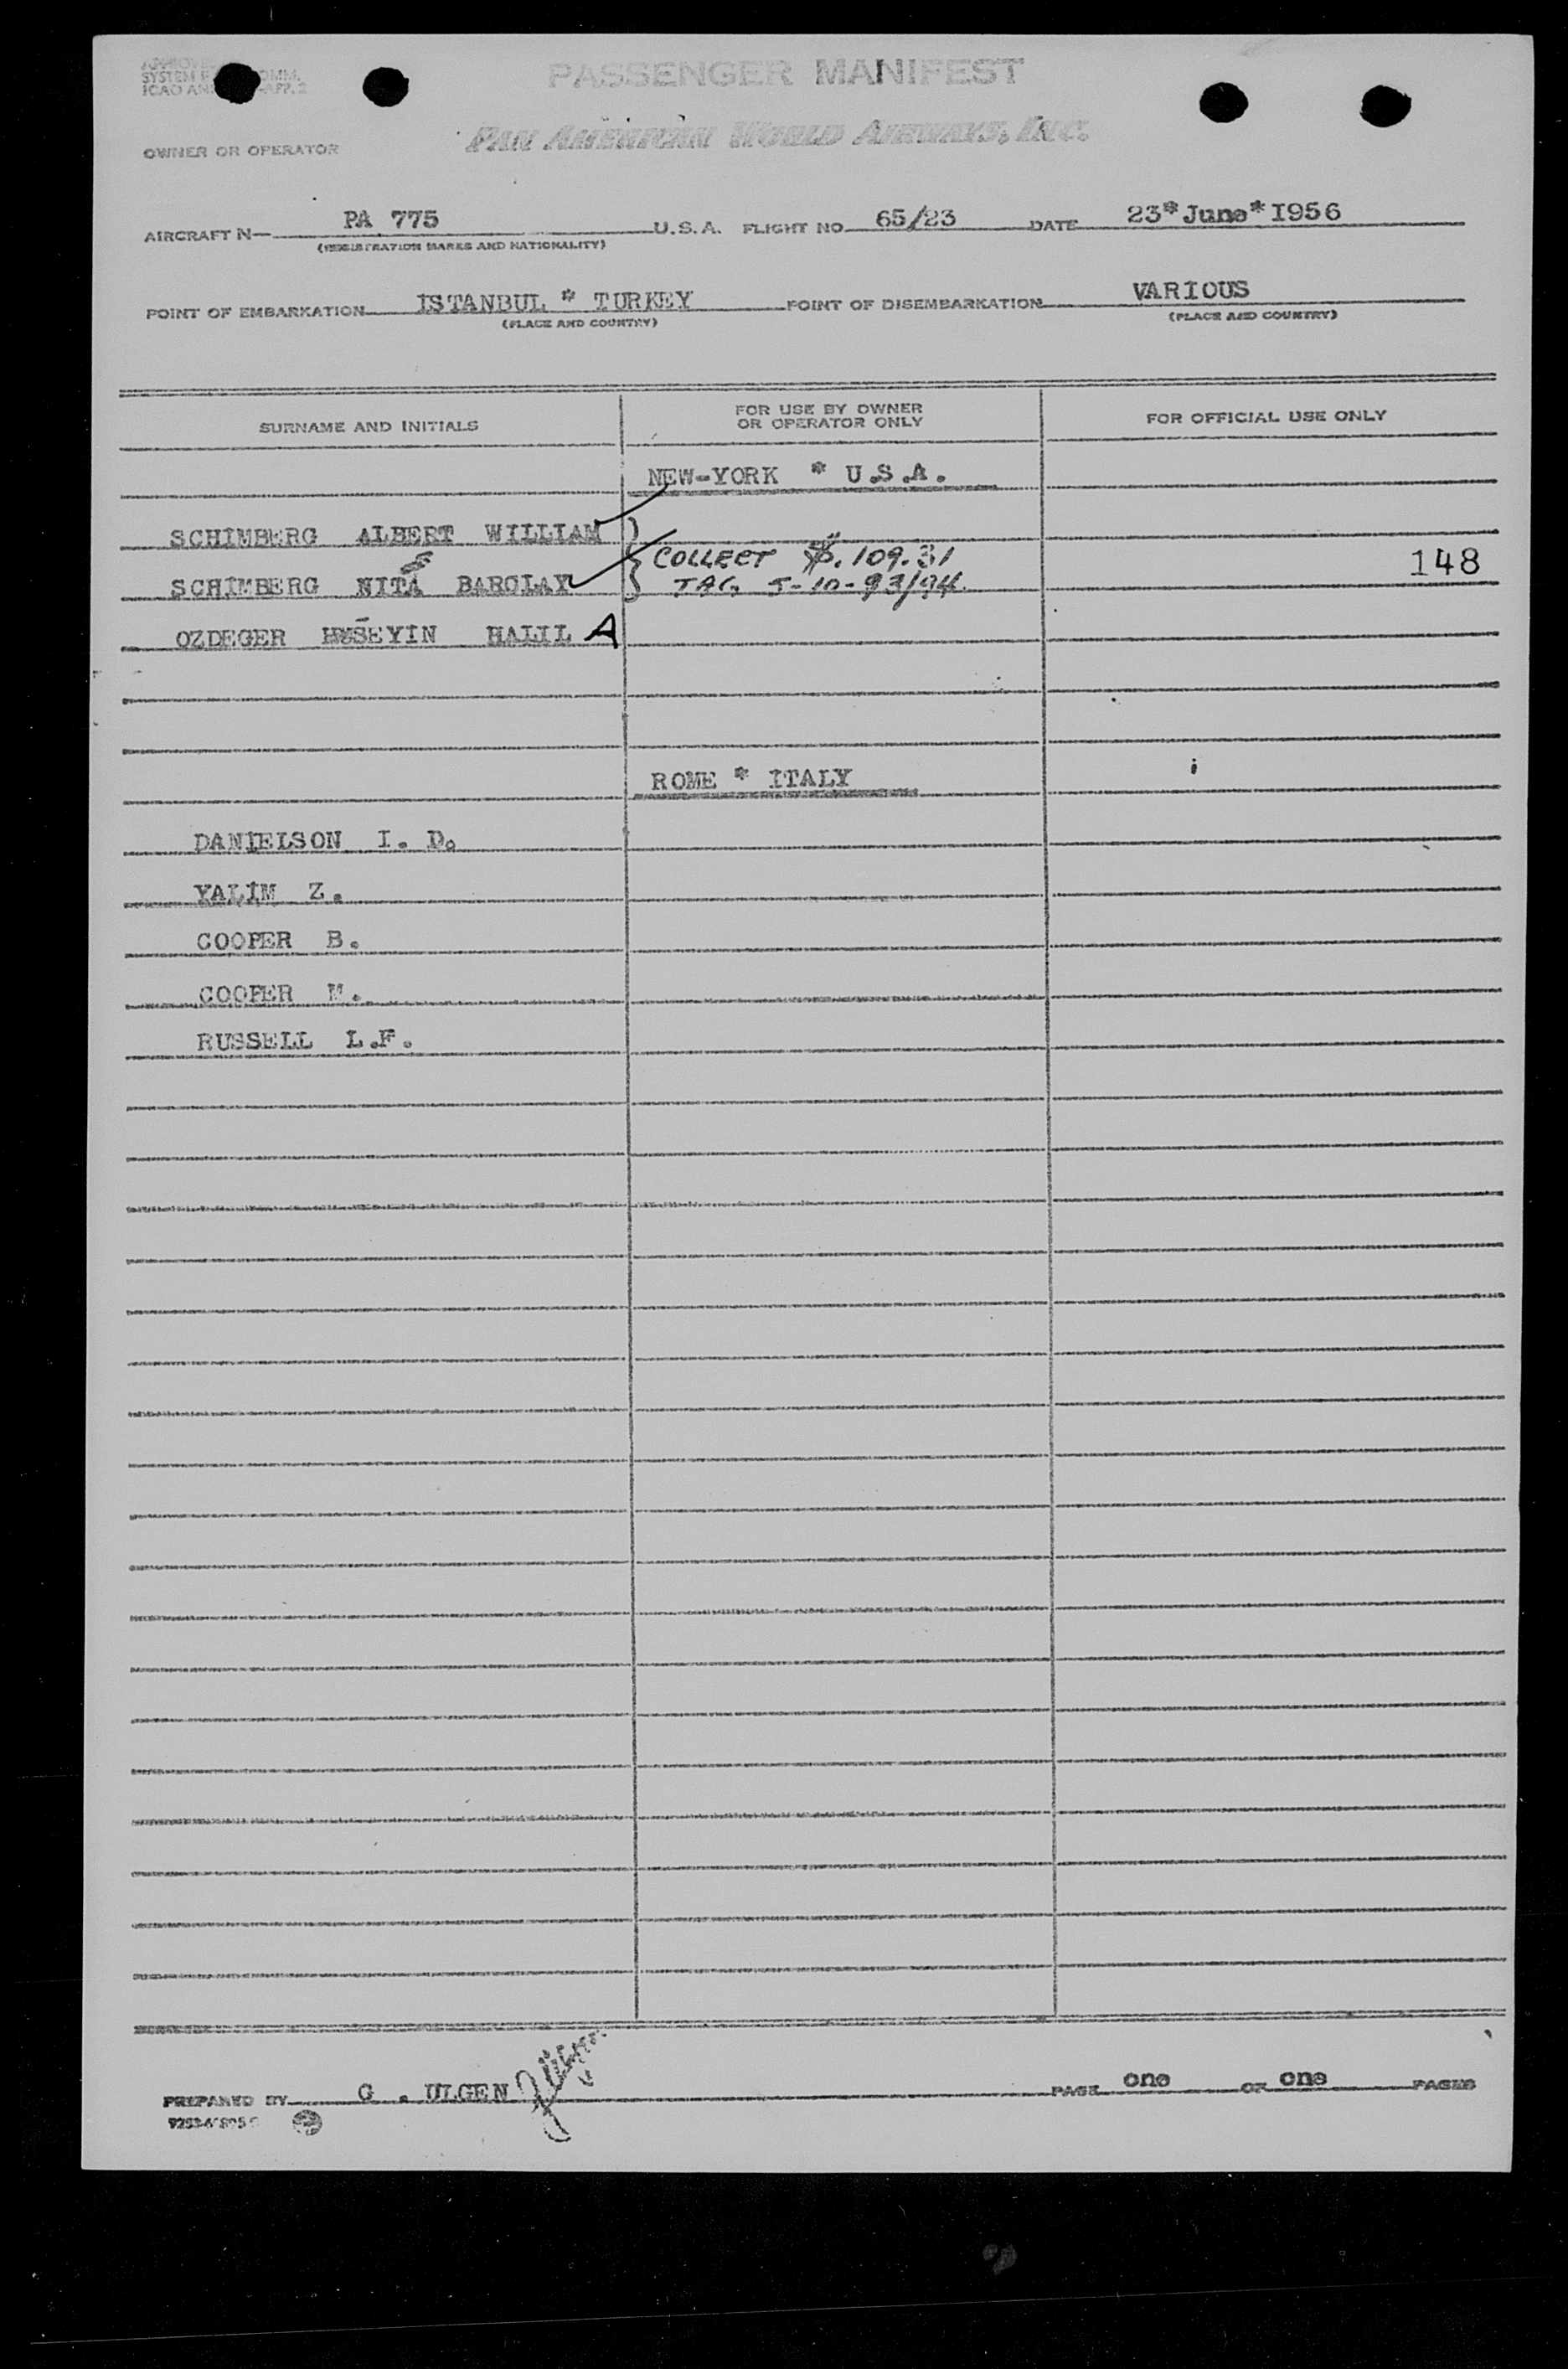 PASSENGER MANIFEST
OWNER OR OPERATOR PAN AMERICAN WORLD AIRWAYS, INC.
AIRCRAFT N— PA 775 U.S.A. FLIGHT NO 65/23 DATE 23*June*I956
(REGISTRATION MARKS AND NATIONALITY)
POINT OF EMBARKATION İSTANBUL * TURKEY POINT OF DISEMBARKATION VARIOUS
(PLACE AND COUNTRY) (PLACE AND COUNTRY)
SURNAME AND INITIALS
FOR USE BY OWNER
OR OPERATOR ONLY
FOR OFFICIAL USE ONLY
NEW-YORK * U.S.A.
SCHİMBERG ALBERT WILLIAM
COLLECT $.109.31
SCHİMBERG NITA BARCLAY TAG 5-10-93/94 148
OZDEGER HUSEYİN HALIL A
ROME * İTALY
DANİELSON I. D.
YALİM Z.
COOPER B.
COOPER M.
RUSSELL L.F.
PREPARED BY G. ULGEN PAGE one OF one PAGES